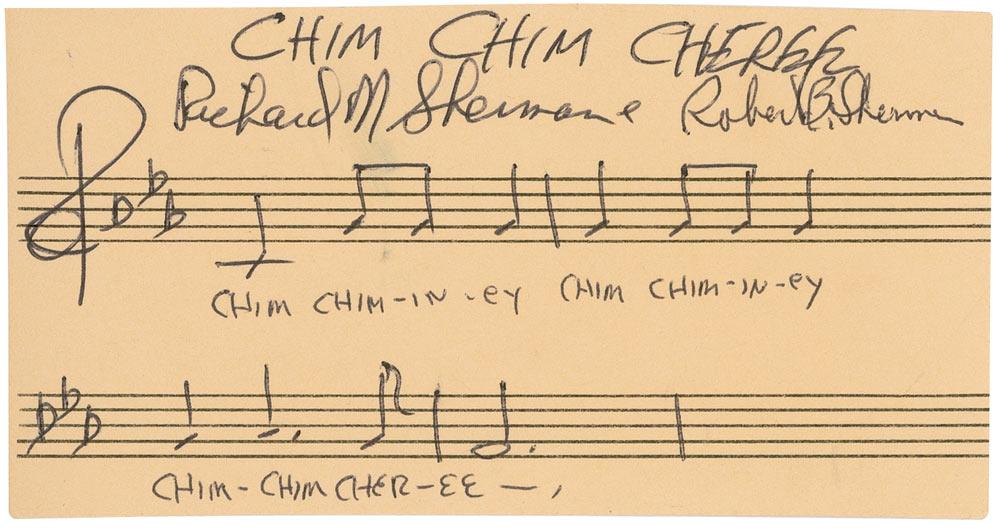 CHIM CHIM CHEREE
Richard M Sherman & Robert B. Sherman
CHIM CHIM-IN-EY CHIM CHIM-IN-EY
CHIM-CHIM CHER-EE — ,